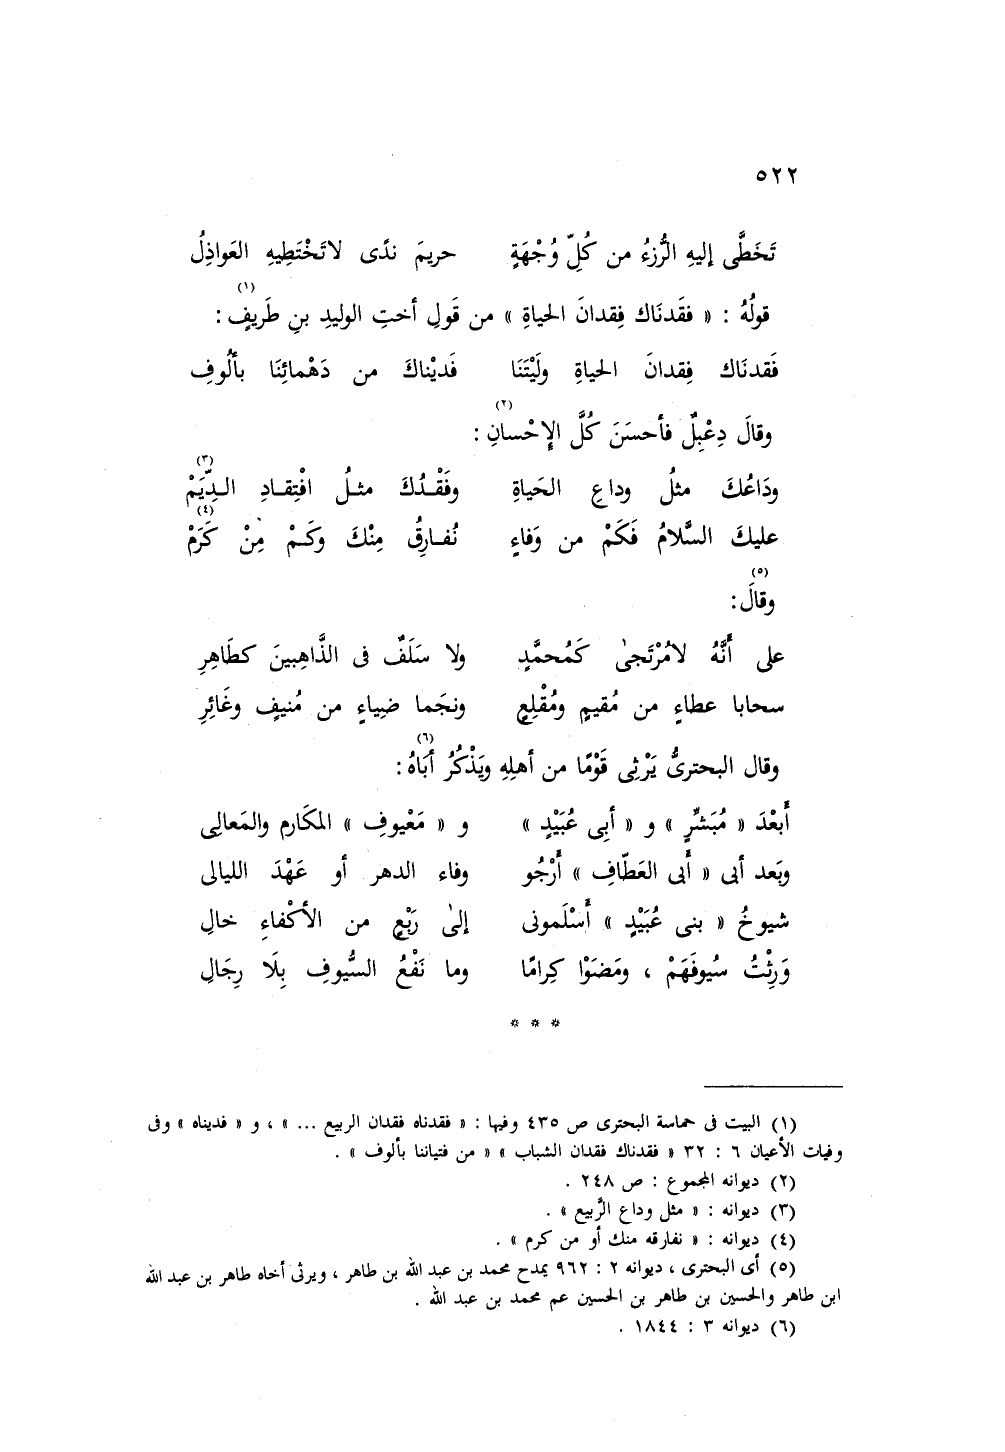 ٥٢٢
تَخَطَّى إليهِ الرُّزءُ من كُلِّ وُجْهَةٍ حريمَ ندًى لاتَخْتَطِيهِ العَواذِلُ
قولُهُ : « فقَدنَاك فِقدانَ الحياةِ » من قَولِ أختِ الوليدِ بنِ طَريفٍ (١) :
فَقدنَاك فِقدانَ الحياةِ ولَيْتَنَا فَديْناكَ من دَهْمائِنَا بألُوفِ
وقالَ دِعْبِلٌ فأحسَنَ كُلَّ الإِحْسانِ (٢) :
ودَاعُكَ مثلُ وداعِ الحَياةِ وفَقْدُكَ مثلُ افْتِقادِ الدِّيَمْ (٣)
عليكَ السَّلامُ فَكَمْ من وَفاءٍ نُفارِقُ مِنْكَ وكَمْ مِنْ كَرَمْ (٤)
وقالَ (٥) :
على أَنَّهُ لامُرْتَجىٰ كَمُحمَّدٍ ولا سَلَفٌ فى الذَّاهِبينَ كطَاهِرِ
سحابا عطاءٍ من مُقيمٍ ومُقْلِعٍ ونجَما ضِياءٍ من مُنيفٍ وغَائِرِ
وقال البحترىُّ يَرْثِى قَوْمًا من أهلِهِ ويَذْكُرُ أبَاهُ (٦) :
أَبعْدَ « مُبَشرٍّ » و « أبِى عُبَيْدٍ » و « مَعْيوفِ » المكَارمِ والمَعالِى
وبَعد أبى « أَبى العَطّافِ » أَرْجُو وفاء الدهر أو عَهْدَ الليالى
شيوخُ « بنى عُبَيْدٍ » أَسْلَمونى إلىٰ رَبْعٍ من الأكْفاءِ خالِ
وَرِثْتُ سُيوفَهَمْ ، ومَضَوْا كِرامًا وما نَفْعُ السُّيوفِ بِلَا رِجَالِ
* * *
(١) البيت فى حماسة البحترى ص ٤٣٥ وفيها : « فقدناه فقدان الربيع ... » ، و « فديناه » وفى
وفيات الأعيان ٦ : ٣٢ « فقدناك فقدان الشباب » « من فتياننا بألوف » .
(٢) ديوانه المجموع : ص ٢٤٨ .
(٣) ديوانه : « مثل وداع الرَّبيع » .
(٤) ديوانه : « نفارقه منك أو من كرم » .
(٥) أى البحترى ، ديوانه ٢ : ٩٦٢ يمدح محمد بن عبد الله بن طاهر ، ويرثى أخاه طاهر بن عبد الله
ابن طاهر والحسين بن طاهر بن الحسين عم محمد بن عبد الله .
(٦) ديوانه ٣ : ١٨٤٤ .